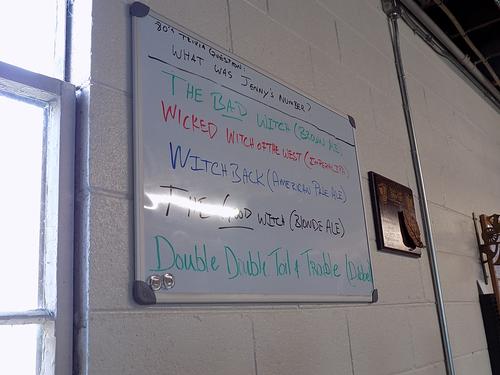 80's TRIVIA QUESTION:
WHAT WAS JENNY'S NUMBER?
THE BAD WITCH (BROWN ALE)
WICKED WITCH OF THE WEST (IMPERIAL IPA)
WITCH BACK (AMERICAN PALE ALE)
THE GOOD WITCH (BLONDE ALE)
Double Double Toil & Trouble (Dubbel